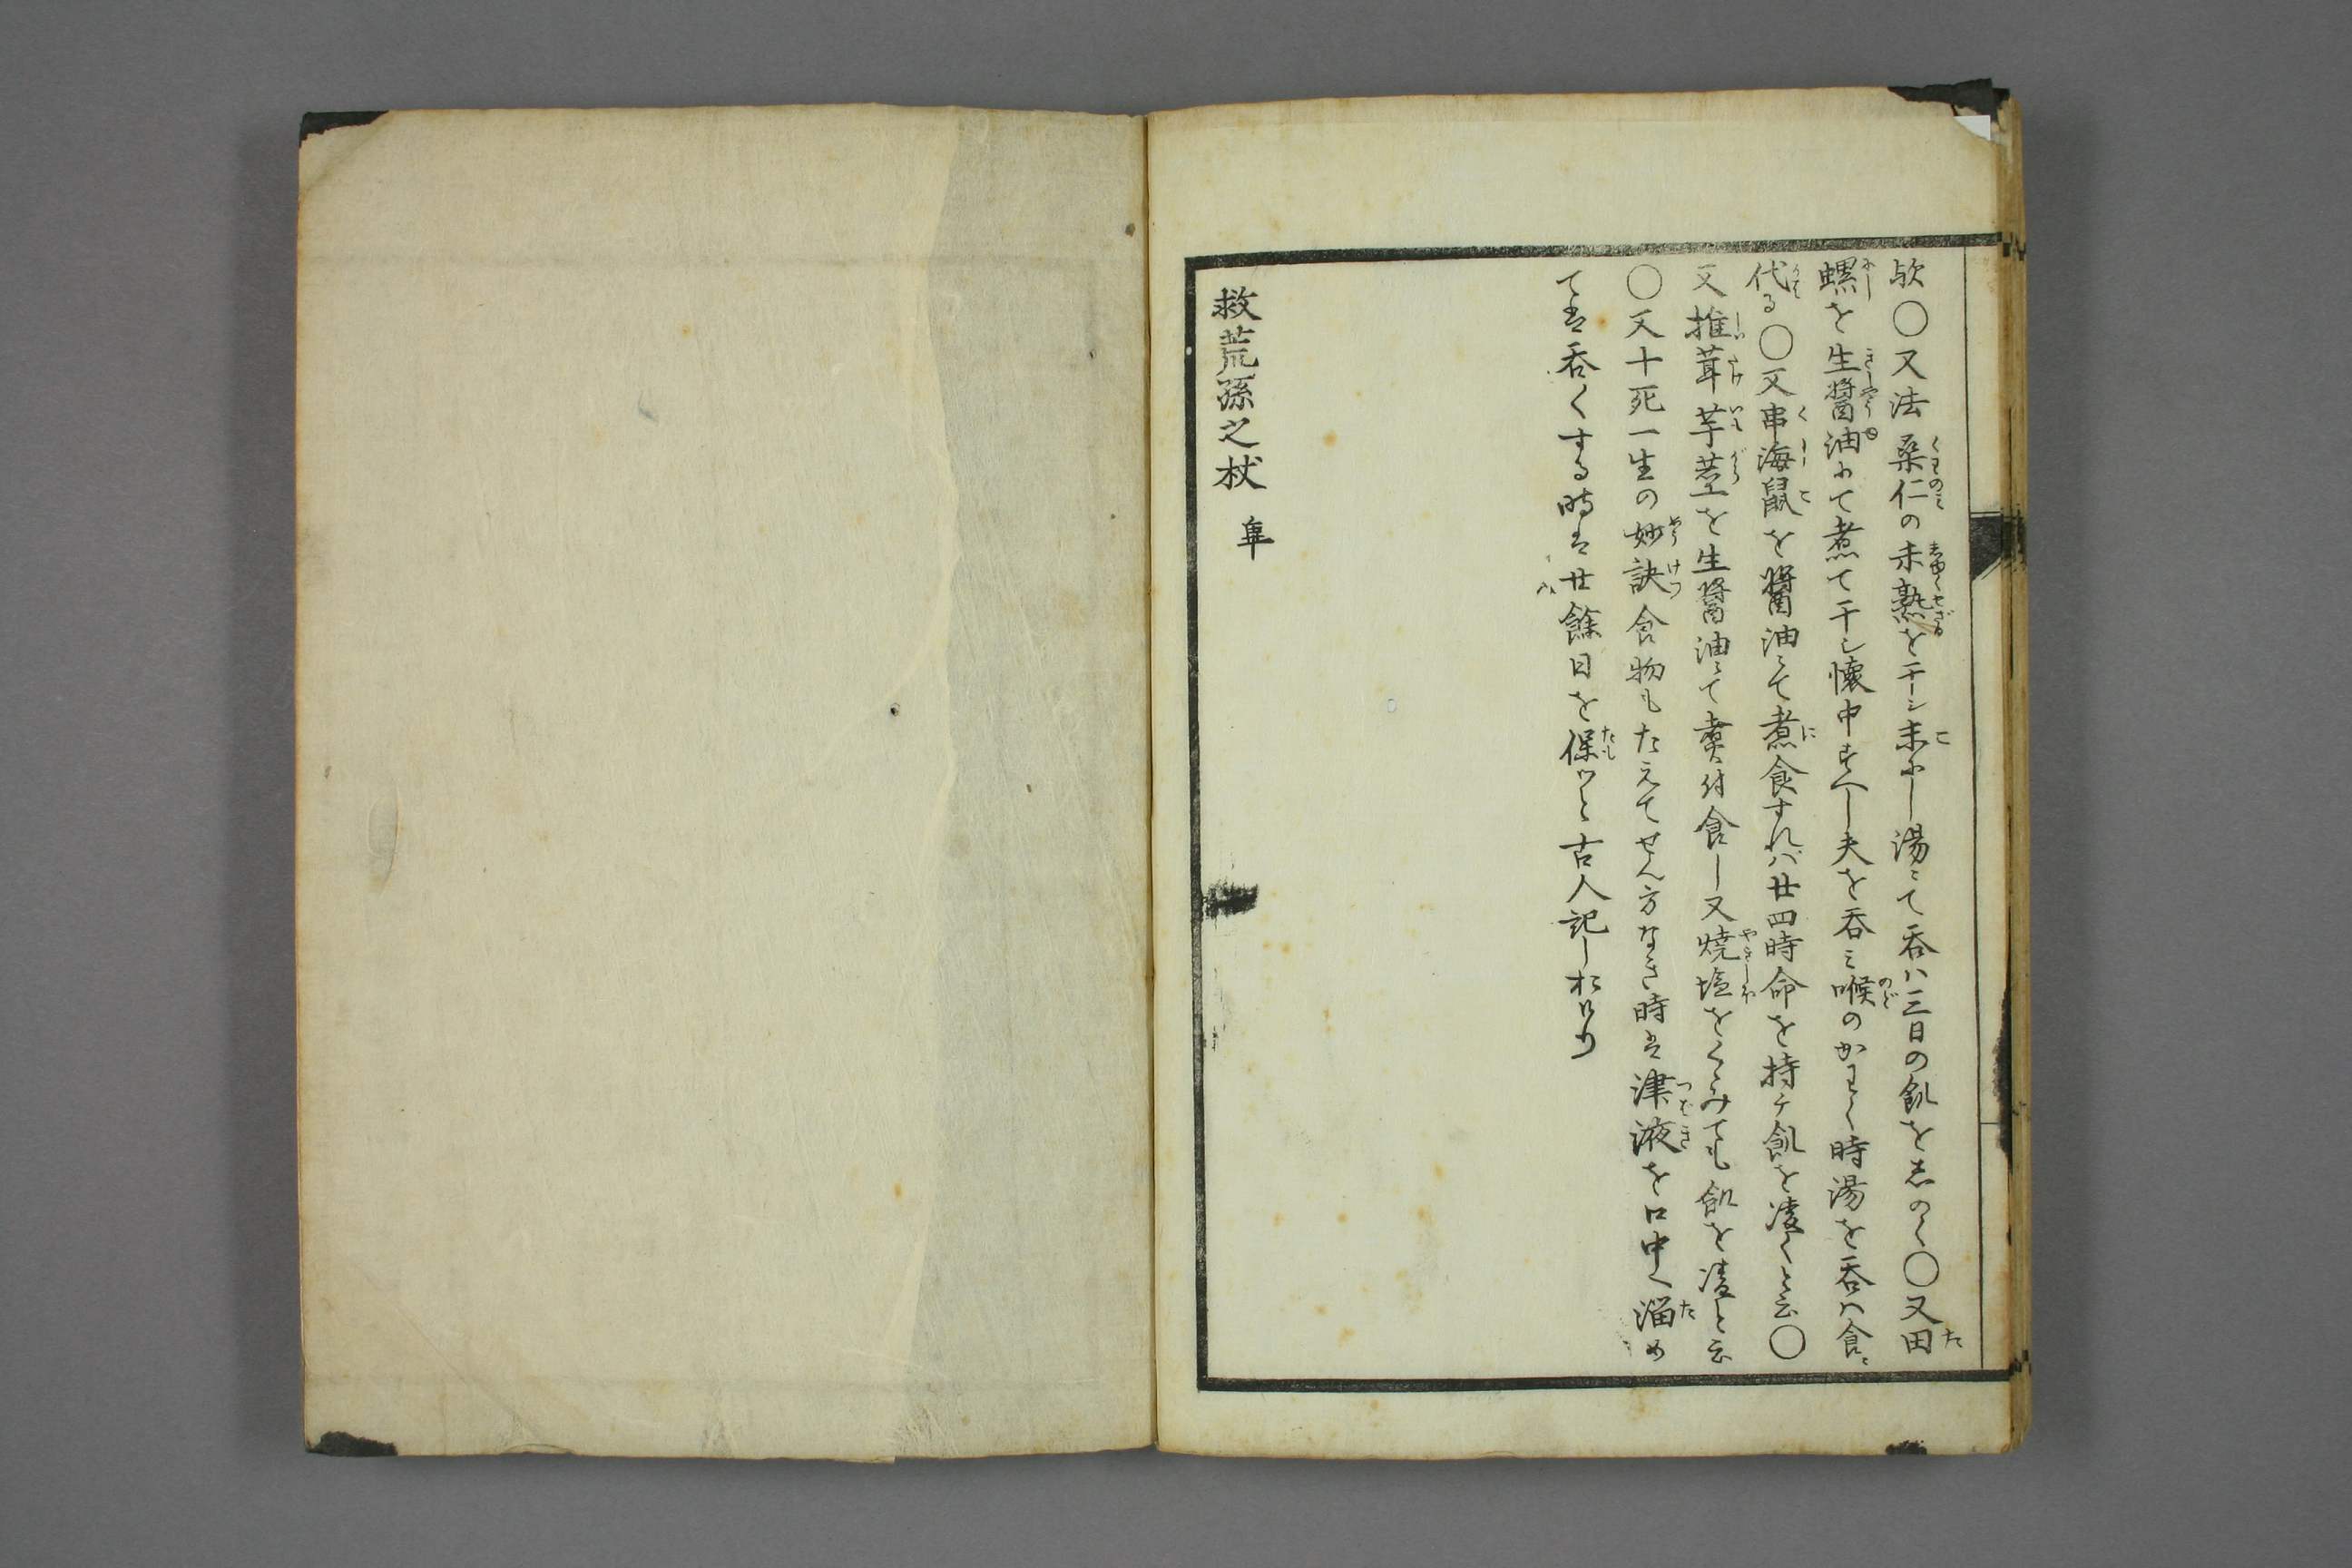 欤○又法桑仁の未熟を干シ末にし湯ニて呑ハ三日の飢を志のく○又田
螺を生醤油にて煮て干シ懐中すべし夫を呑ミ喉のかわく時湯を呑ハ食ニ
代る○又串海鼠を醤油ニて煮食すれバ廿四時命を持チ飢を凌くと云○
又推茸芋茎を生醤油ニて煑付食し又焼塩をくゝみても飢を凌と云
○又十死一生の妙訣食物もたえてせん方なき時は津液を口中へ溜め
ては呑くする時は廿餘日を保ツと古人記しおけり
救荒孫之杖 畢